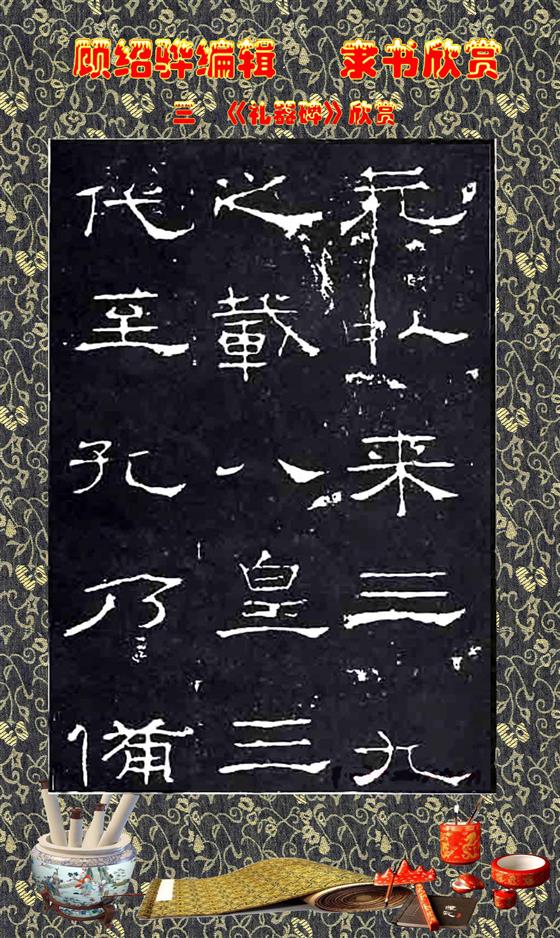 顾绍骅编辑 隶书欣赏
三 《礼器碑》欣赏
元以来三九
之載八皇三
代至孔乃備